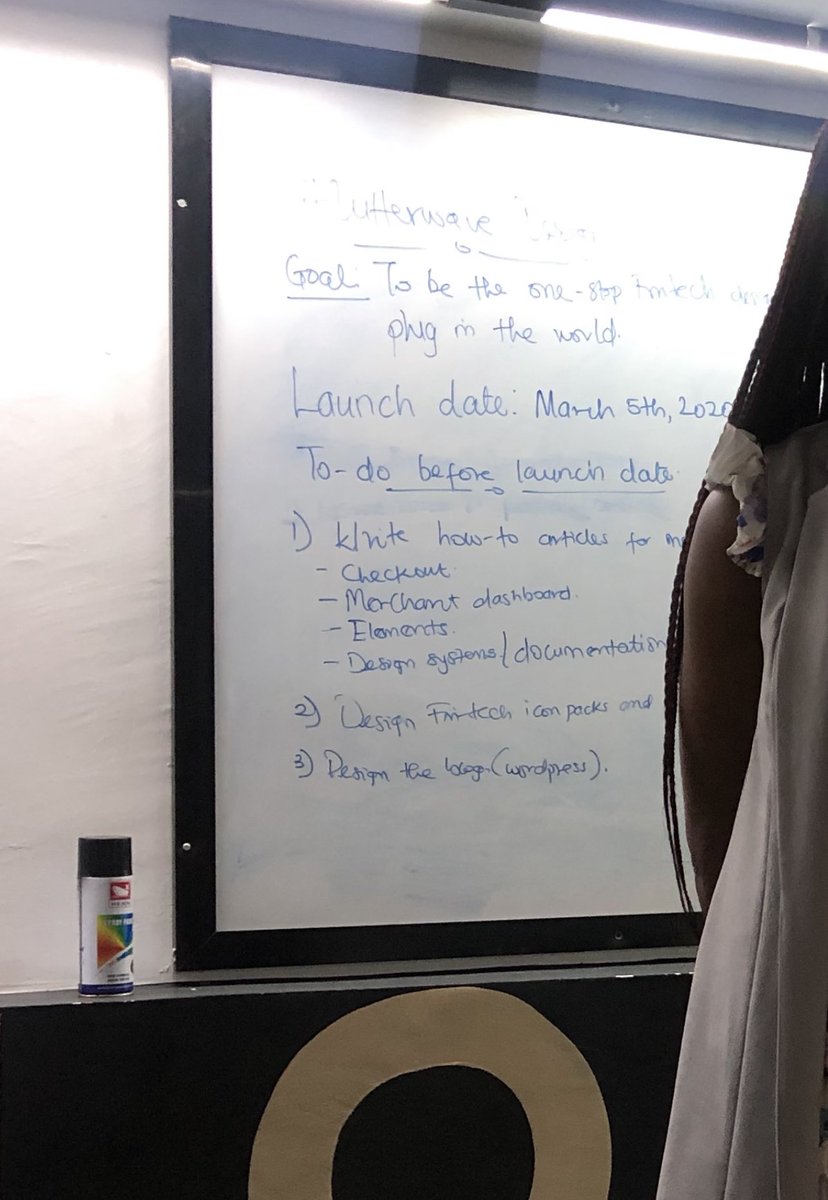 Goal: To be the one-stop Fintech
plug in the world.
Launch date: March 5th, 2020
To-do before launch date
1) Write how-to articles for
- Checkout
- Merchant dashboard.
- Elements.
- Design systems/documentation
2) Design Fintech icon packs and
3) Design the blog. (wordpress).